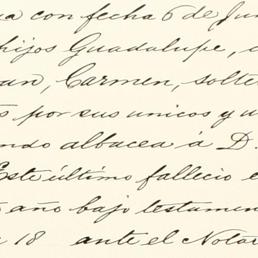 ua con fecha 6 de Jun
hijos Guadalupe,
an, Carmen, solte
s por sus unicos y u
ndo albacea á D.
Este último fallecio e
año bajo testamen
18 ante el Notar